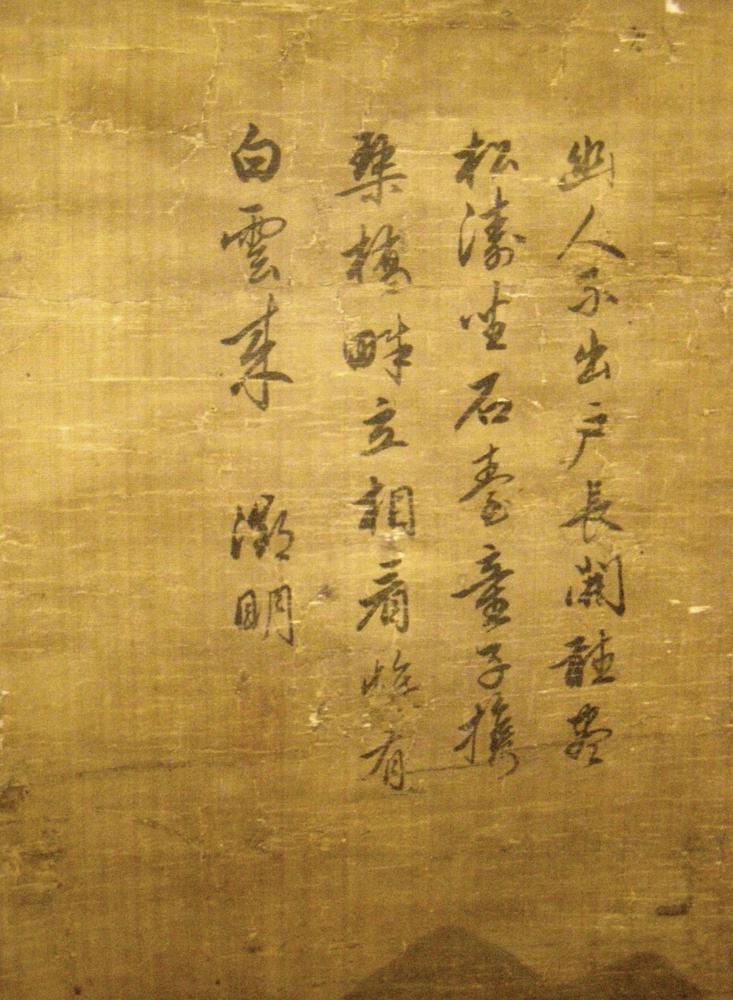 幽人不出戶長開聽盡
松濤坐石臺童子携
琴畔立相看惟有
白雲來 徵明